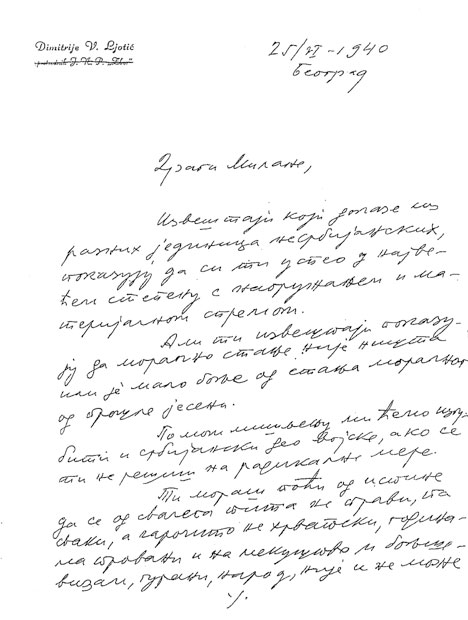 Dimitrije V. Ljotić
25/VI-1940
Београд
Драги Милане,
Извештаји који долазе из
разних јединица несрбијанских,
показују да си ти успео у најве-
ћем степену с наоружањем и ма-
теријалном спремом.
Али ти извештаји показу-
ју да морално стање није ништа
или је мало боље од стања моралног
од прошле јесени.
По мом мишљењу ми ћемо изгу-
бити и србијански део војске, ако се
ти не решиш на радикалне мере.
Ти мораш поћи од истине
да се од свачега пита не прави, та
сваки, а нарочито не хрватски, година-
ма трован и на мекуштво и бољше-
визам, гурани, народ, није и не може